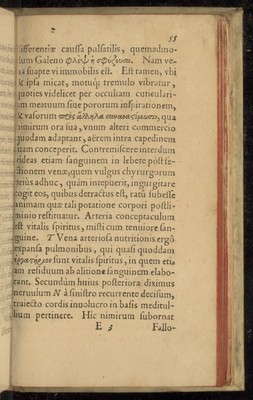 55
differentiæ caussa pulsatilis, quemadmo-
dum Galeno φλὲψ ἡ σφύζουσα. Nam ve-
na suapte vi immobilis est. Est tamen, vbi
& ipsa micat, motuq; tremulo vibratur,
quoties videlicet per occuliam cuticulari-
um meatuum siue pororum inspirationem,
& vasorum πρὸς ἄλληλα συναναστόμωσιν, qua
nimirum ora sua, vnum alteri commercio
quodam adaptant, aërem intra capedinem
suam conceperit. Contremiscere interdum
videas etiam sanguinem in lebete post se-
ctionem venæ, quem vulgus chyrurgorum
prius adhuc, quàm intepuerit, ingurgitare
cogit eos, quibus detractus est, ratū subesse
animam quæ tali potatione corpori postli-
minio restituatur. Arteria conceptaculum
est vitalis spiritus, misti cum tenuiore san-
guine. T Vena arteriosa nutritionis ergô
expansa pulmonibus, qui quasi quoddam
sunt vitalis spiritus, in quem eti-
am residuum ab alitione sanguinem elabo-
rant. Secundùm huius posteriora diximus
neruulum N à sinistro recurrente decisum,
traiecto cordis inuolucro in basis meditul-
lium pertinere. Hic nimirum subornat
E 3 Fallo-